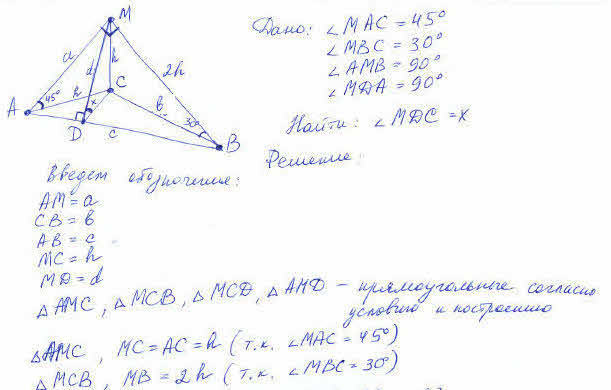 M
a
d
h
2h
A
45°
h
C
x
в
30°
D
c
B
Дано: ∠MAC = 45°
∠MBC = 30°
∠AMB = 90°
∠MDA = 90°
Найти: ∠MDC = x
Решение:
Введем обозначение:
AM = a
CB = в
AB = c
MC = h
MD = d
△AMC, △MCB, △MCD, △AMD – прямоугольные согласно
условию и построению
△AMC, MC = AC = h (т.к. ∠MAC = 45°)
△MCB, MB = 2h (т.к. ∠MBC = 30°)